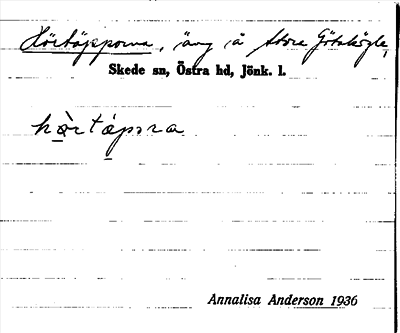 Hörtäpporna, äng å Store Götahögle,
Skede sn, Östra hd, Jönk. l.
hö̀rtápora
Annalisa Anderson 1936